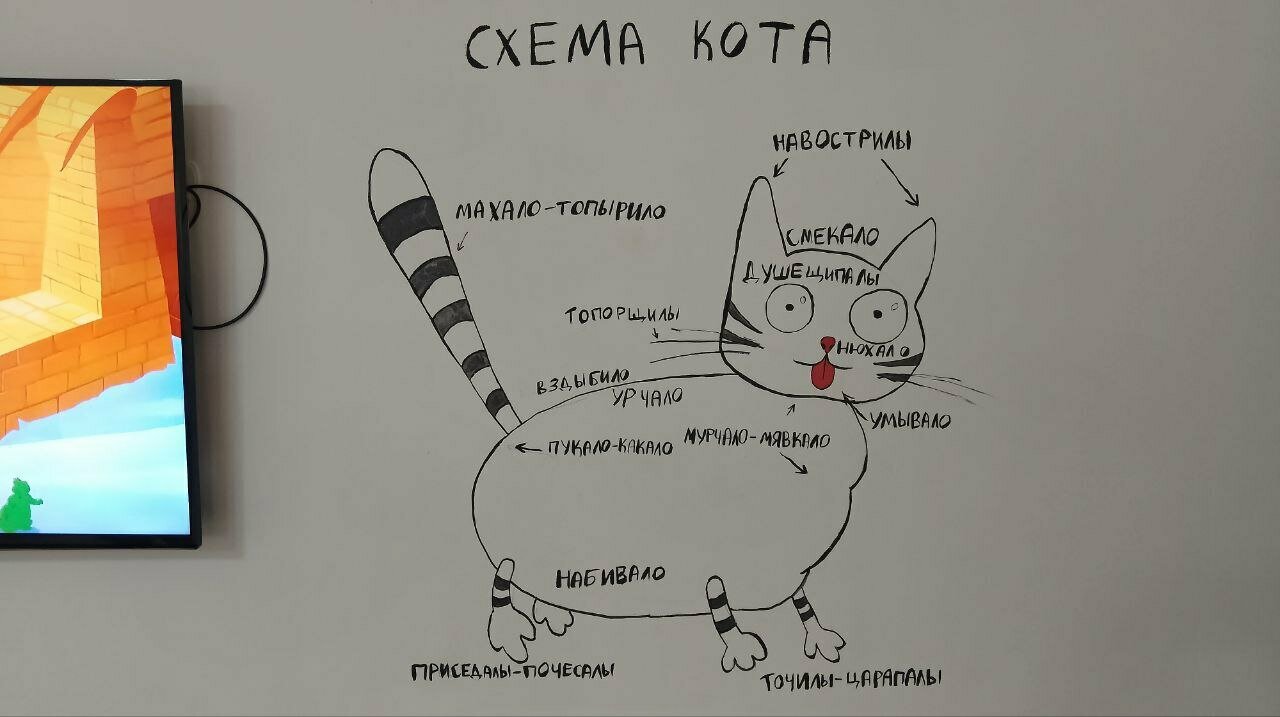 СХЕМА КОТА
НАВОСТРИЛЫ
МАХАЛО-ТОПЫРИЛО
СМЕКАЛО
ДУШЕЩИПАЛЫ
ТОПОРЩИЛЫ
НЮХАЛО
ВЗДЫБИЛО
УРЧАЛО
УМЫВАЛО
ПУКАЛО-КАКАЛО
МУРЧАЛО-МЯВКАЛО
НАБИВАЛО
ПРИСЕДАЛЫ-ПОЧЕСАЛЫ
ТОЧИЛЫ-ЦАРАПАЛЫ